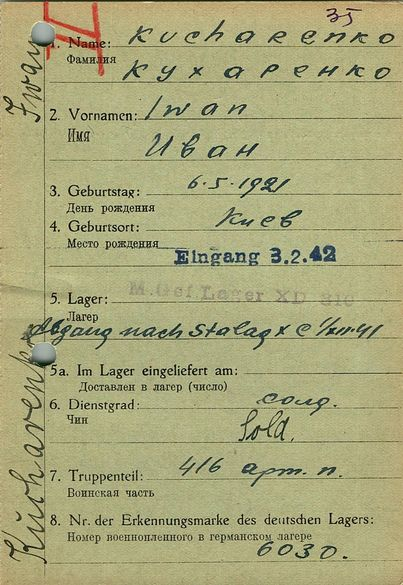 35
1. Name: Kucharenko
Фамилия Кухаренко
2. Vornamen: Iwan
Имя Иван
3. Geburtstag: 6.5.1921
День рождения
4. Geburtsort: Киев
Место рождения
Eingang 3.2.42
5. Lager: M Gef Lager XD 310
Лагер
Abgang nach Stalag X C 1/XII.41
5a. Im Lager eingeliefert am:
Доставлен в лагер (число)
6. Dienstgrad: солд.
Чин Sold.
7. Truppenteil: 416 арт. п.
Воинская часть
8. Nr. der Erkennungsmarke des deutschen Lagers:
Номер военнопленного в германском лагере
6030.
Kucharenko Iwan